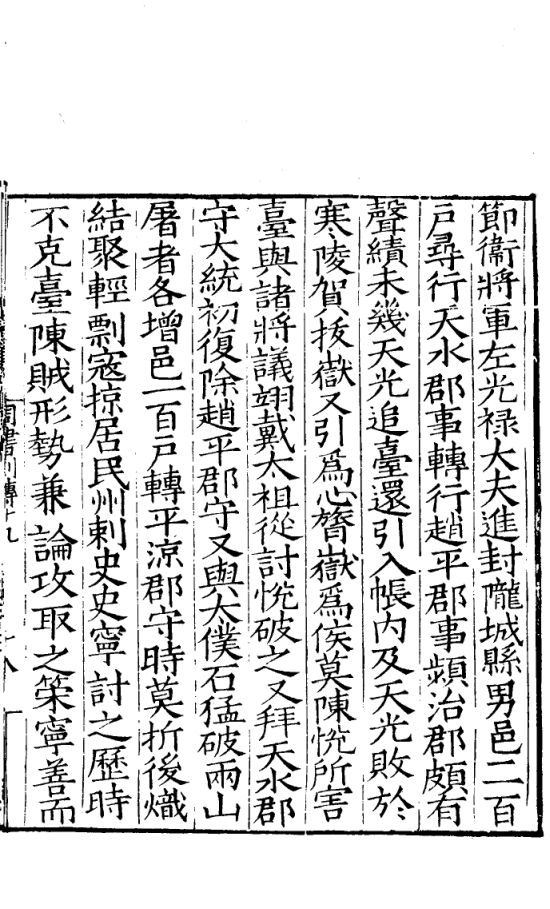 節衞將軍左光祿大夫進封隴城縣男邑二百
戶尋行天水郡事轉行趙平郡事頻治郡頗有
聲績未幾天光追臺還引入帳內及天光敗於
寒陵賀拔嶽又引爲心膂嶽爲侯莫陳悅所害
臺與諸將議翊戴太祖從討悅破之又拜天水郡
守大統初復除趙平郡守又與太僕石猛破兩山
屠者各增邑一百戶轉平涼郡守時莫折後熾
結聚輕剽寇掠居民州刺史史寧討之歷時
不克臺陳賊形勢兼論攻取之策寧善而
周書列傳十九
十八